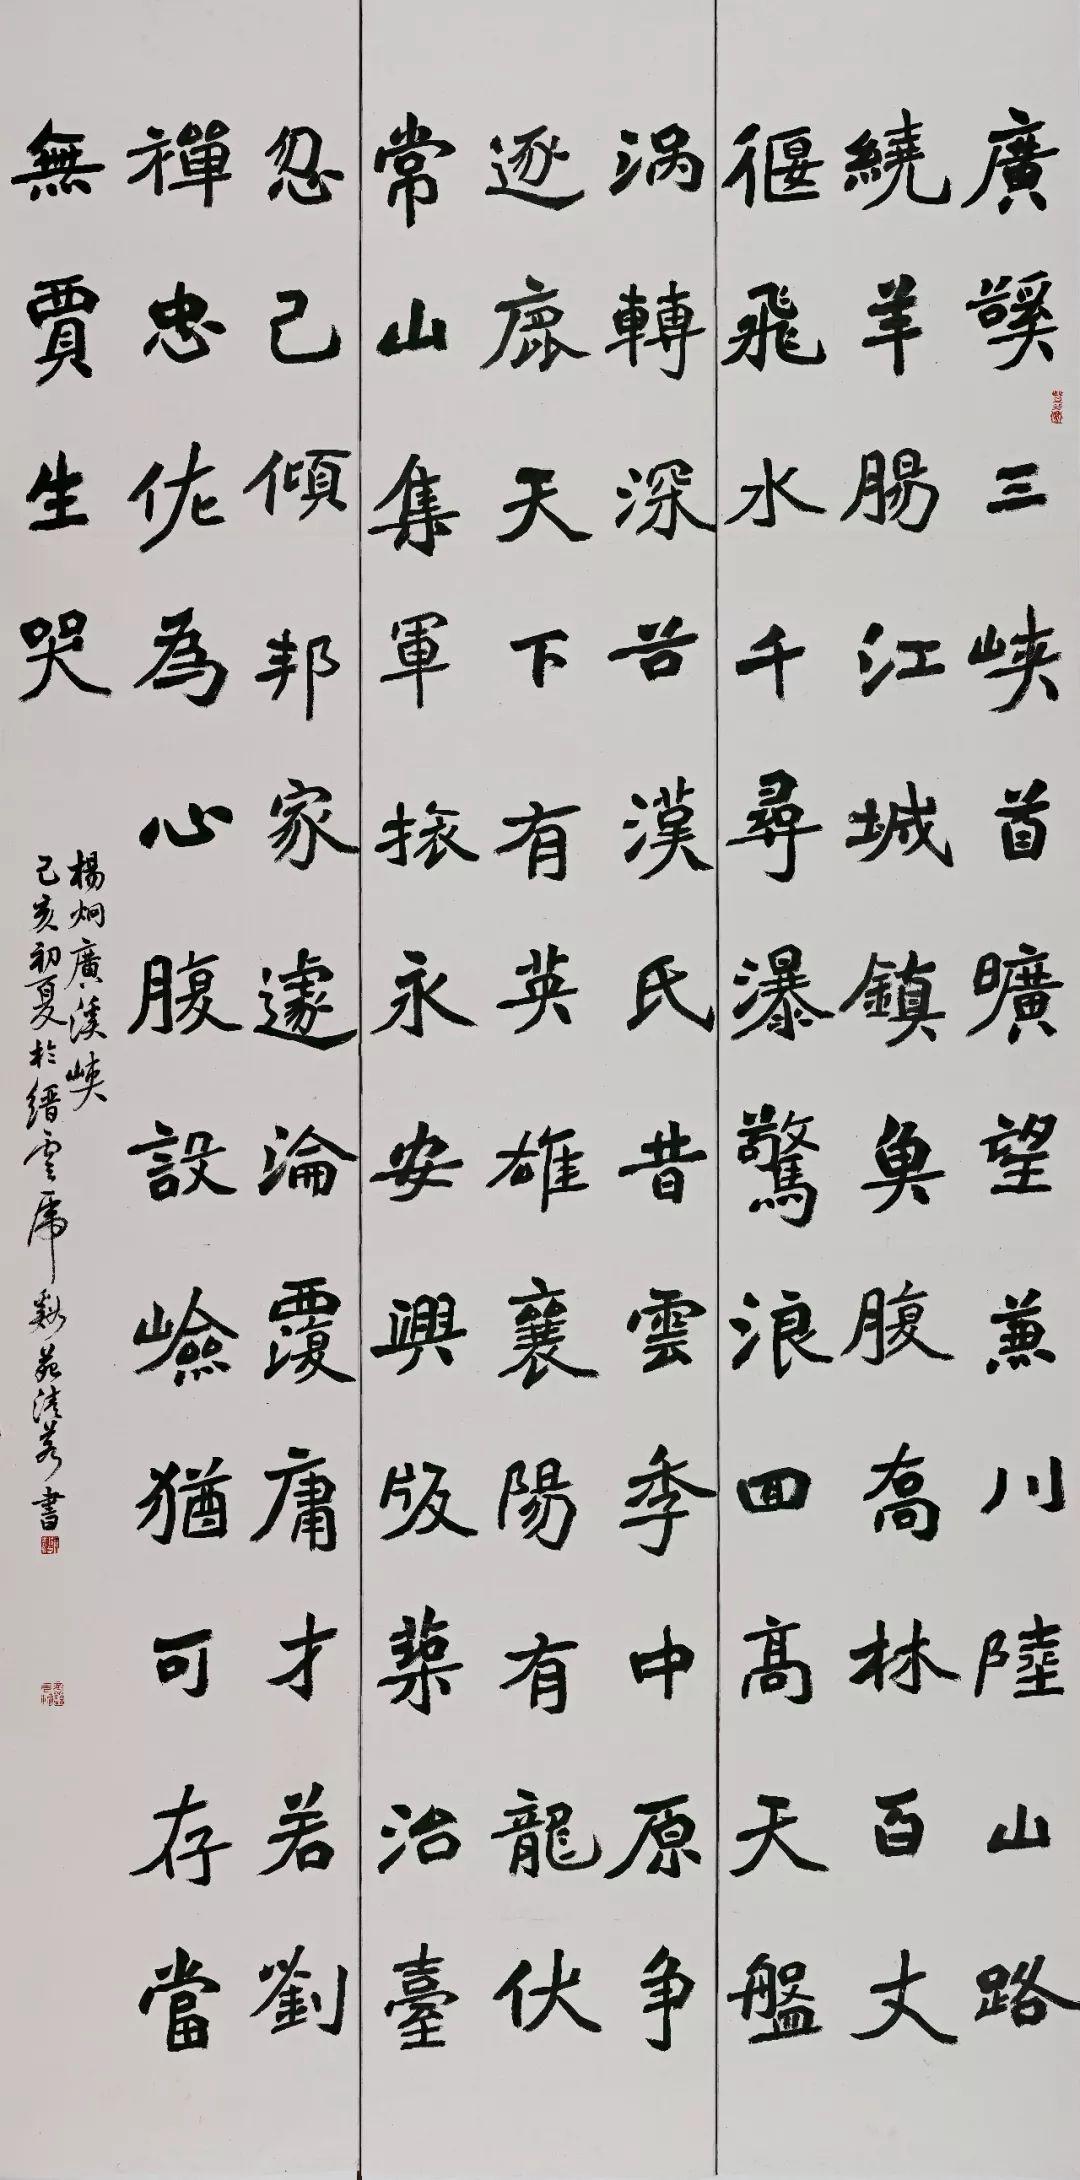 廣谿三峽首曠望兼川陸山路
繞羊腸江城鎮魚腹喬林百丈
偃飛水千尋瀑驚浪回高天盤
渦轉深谷漢氏昔雲季中原爭
逐鹿天下有英雄襄陽有龍伏
常山集軍旅永安興版築治臺
忽已傾邦家遽淪覆庸才若劉
禪忠佐為心腹設嶮猶可存當
無賈生哭
楊炯廣溪峽
己亥初夏於縉雲苑清若書